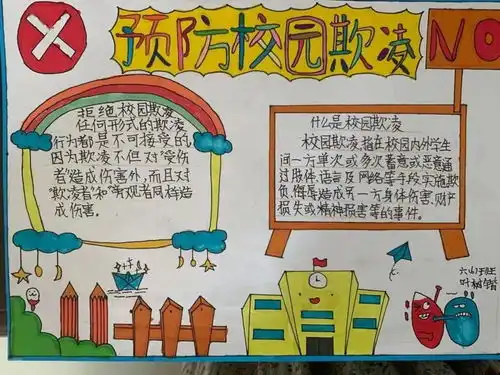 预防校园欺凌
NO
拒绝校园欺凌
任何形式的欺凌
行为都是不可接受的,
因为欺凌不但对"受伤
者"造成伤害外,而且对
"欺凌者"和"旁观者"同样造
成伤害。
什么是校园欺凌
校园欺凌,指在校园内外学生
间一方单次或多次蓄意或恶意通
过肢体、语言及网络等手段实施欺
负、侮辱造成另一方身体伤害、财产
损失或精神损害等的事件。